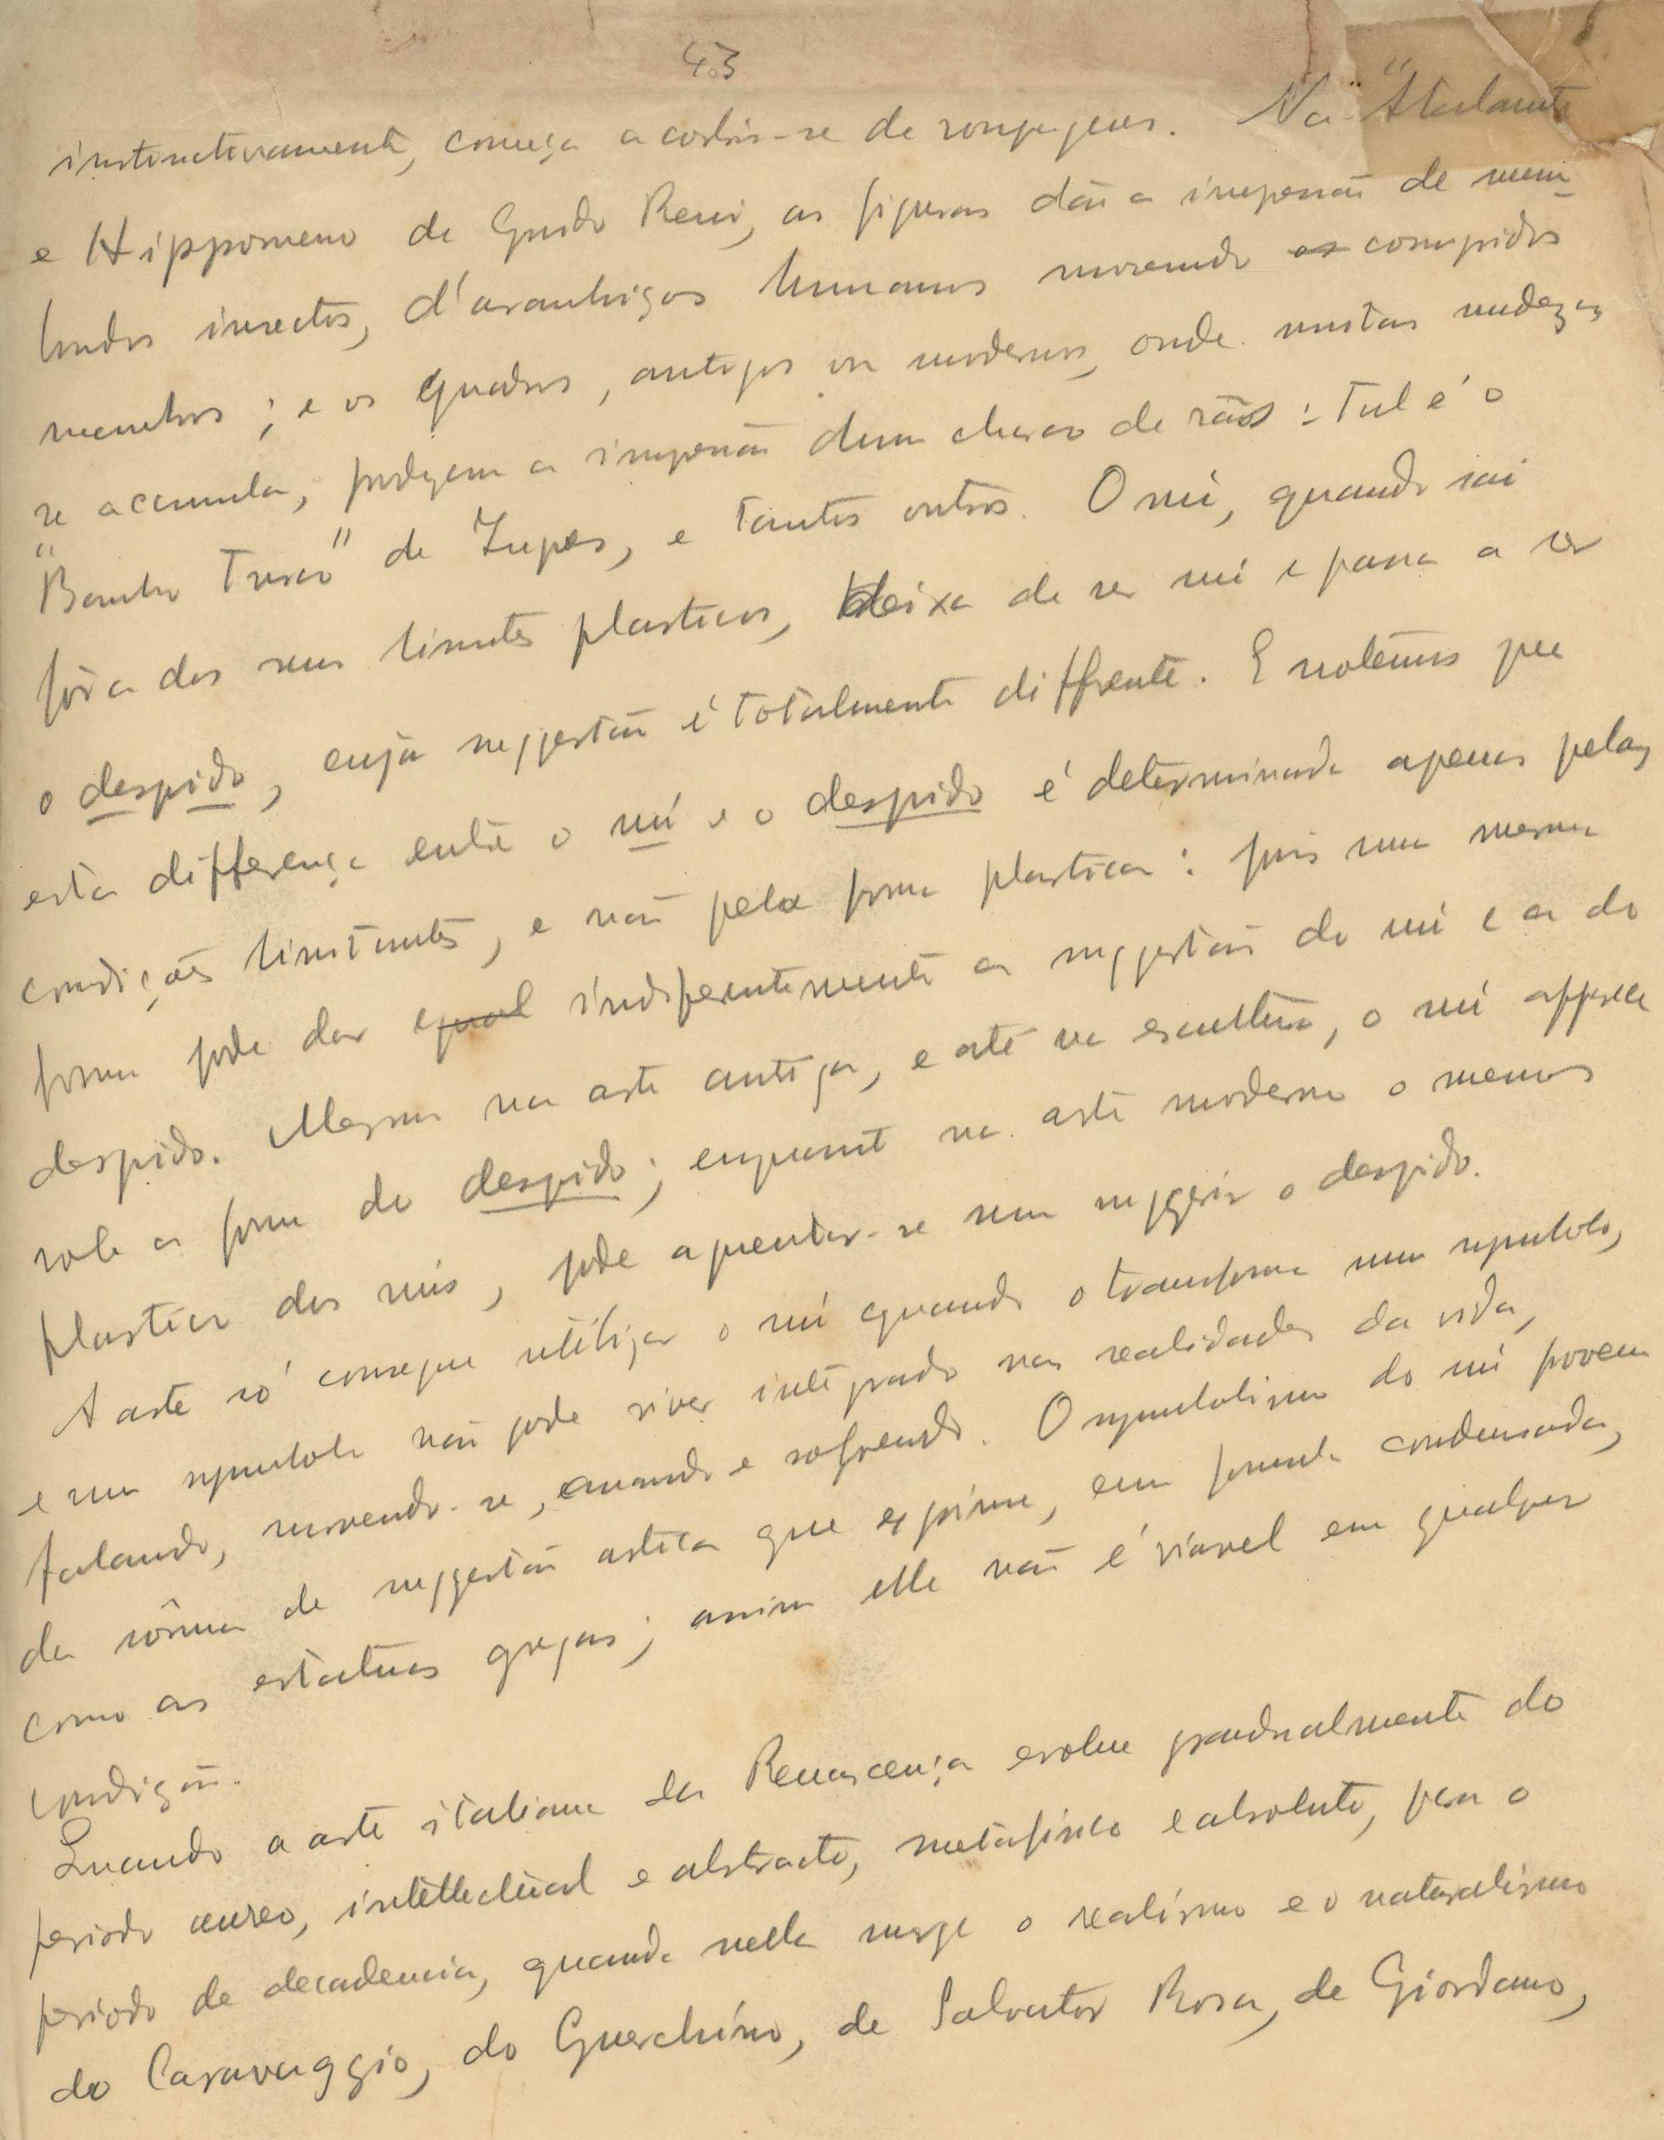 43
instinctivamente, começa a cobrir-se de roupagens. Na "Atalante
e Hippomeno de Guido Reni, as figuras dão a impressão de
bundos insectos, d'aranhiços humanos movendo os compridos
membros; e os quadros, antigos ou modernos, onde muitas nudezas
se acumulam, produzem a impressão dum charco de rãs: tal é o
"Banho Turco" de Ingres, e tantos outros. O nú, quando sai
fóra dos seus limites plasticos, deixa de ser nú e passa a ser
o despido, cuja suggestão é totalmente diffrente. E notemos que
esta differença entre o nú e o despido é determinada apenas pelas
condições limitantes, e não pela forma plastica: pois uma mesma
forma pode dar igual indiferentemente a suggestão do nú e a do
despido. Mesmo na arte antiga, e até na escultura, o nú apparece
sob a forma do despido; enquanto na arte moderna o menos
plastico dos nús, pode apresentar-se sem suggerir o despido.
A arte só consegue utilizar o nú quando o transforma num symbolo,
e um symbolo não pode viver integrado nas realidades da vida,
falando, movendo-se, amando e sofrendo. O symbolismo do nú provem
da sôma de suggestão artistica que exprime, em formula condensada,
como as estatuas gregas; assim elle não é viavel em qualquer
condição.
Quando a arte italiana da Renascença evolue gradualmente do
periodo aureo, intellectual e abstracto, metafisico e absoluto, para o
periodo de decadencia, quando nella surge o realismo e o naturalismo
do Caravaggio, do Guerchino, de Salvator Rosa, de Giordano,